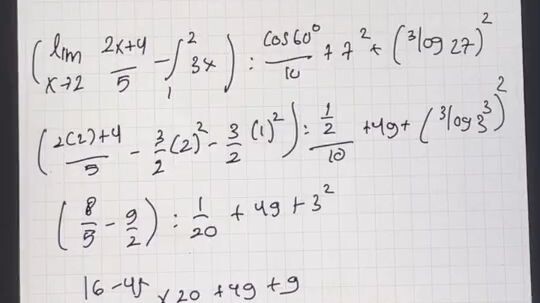 (lim x→2 2x+4/5 - ∫₁² 3x) : cos60°/10 + 7² + (³log 27)²
(2(2)+4/5 - 3/2(2)² - 3/2(1)²) : 1/2/10 + 49 + (³log 3³)²
(8/5 - 9/2) : 1/20 + 49 + 3²
16-45 x 20 + 49 + 9